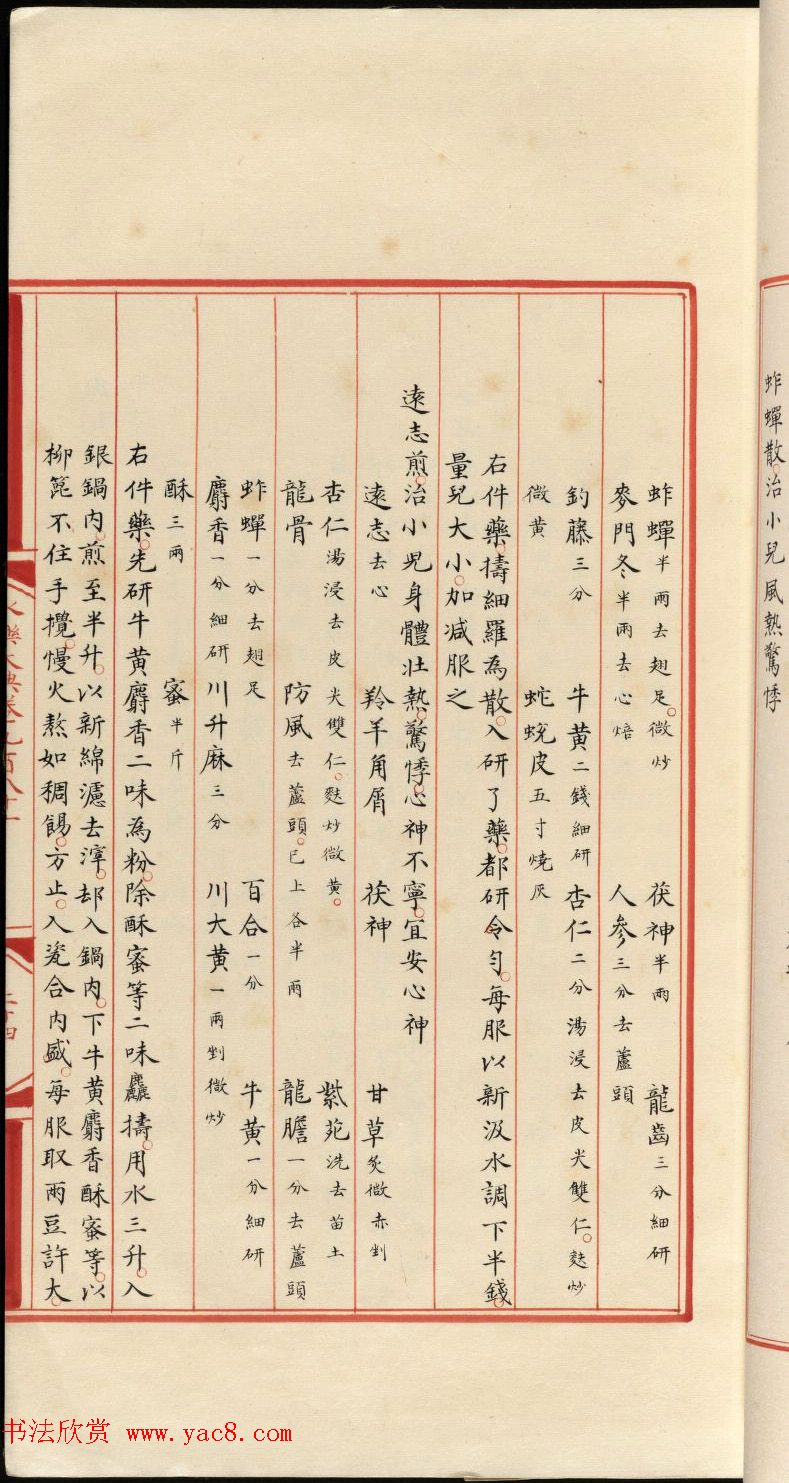 蚱蟬散。治小兒風熱驚悸
蚱蟬半兩去翅足。微炒 茯神半兩 龍齒三分細研
麥門冬半兩去心焙 人參三分去蘆頭
釣藤三分 牛黃二錢細研 杏仁二分湯浸去皮尖雙仁。麩炒
微黃 蛇蛻皮五寸燒灰
右件藥。擣細羅為散。入研了藥。都研令勻。每服以新汲水調下半錢。
量兒大小。加減服之
遠志煎。治小兒身體壯熱。驚悸。心神不寧。宜安心神
遠志去心 羚羊角屑 茯神 甘草炙微赤剉
杏仁湯浸去皮尖雙仁。麩炒微黃。 紫菀洗去苗土
龍骨 防風去蘆頭。已上各半兩 龍膽一分去蘆頭
蚱蟬一分去翅足 百合一分 牛黃一分細研
麝香一分細研 川升麻三分 川大黃一兩剉微炒
酥三兩 蜜半斤
右件藥。先研牛黃麝香二味為粉。除酥蜜等二味麤擣。用水三升。入
銀鍋內。煎至半升。以新綿濾去滓。却入鍋內。下牛黃麝香酥蜜等。以
柳篦不住手攪。慢火熬如稠餳。方止。入瓷合內盛。每服取兩豆許大。
永樂大典卷九百八十一
二十四
书法欣赏 www.yac8.com